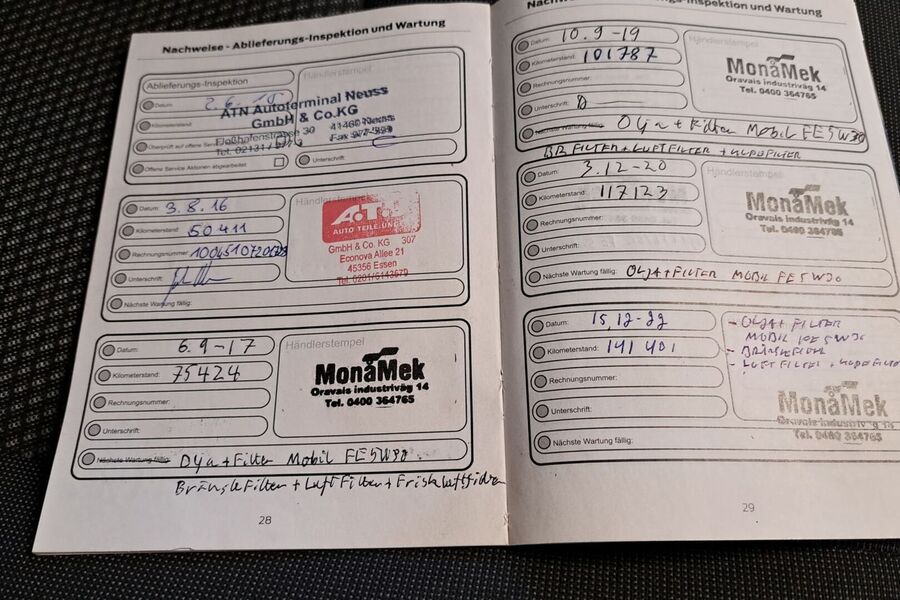 Nachweise - Ablieferungs-Inspektion und Wartung
Ablieferungs-Inspektion
Händlerstempel
Datum:
2.6.15
Kilometerstand:
Überprüft auf offene
Offene Service Aktionen abgearbeitet:
Unterschrift:
ATN Autoterminal Neuss
GmbH & Co.KG
Floßhafenstrasse 30 41460 Neuss
Tel. 02131
Datum: 3.8.16
Kilometerstand: 50411
Rechnungsnummer:
Unterschrift:
Nächste Wartung fällig:
Händlerstempel
A.T.U
AUTO TEILE UNGER
GmbH & Co. KG 307
Econova Allee 21
45356 Essen
Tel. 0201/6143679
Datum: 6.9-17
Kilometerstand: 75424
Rechnungsnummer:
Unterschrift:
Nächste Wartung fällig: Olja + Filter Mobil FE5W30
Bränsle Filter + Luft Filter + Friskluftfilter
Händlerstempel
MonåMek
Oravais industriväg 14
Tel. 0400 364765
28
Inspektion und Wartung
Datum: 10.9-19
Kilometerstand: 101787
Rechnungsnummer:
Unterschrift:
Nächste Wartung fällig: Olja + Filter Mobil FE5W30
BR FILTER + LUFTFILTER + KUPEFILTER
Händlerstempel
MonåMek
Oravais industriväg 14
Tel. 0400 364765
Datum: 3.12-20
Kilometerstand: 117123
Rechnungsnummer:
Unterschrift:
Nächste Wartung fällig: OLJA + FILTER MOBIL FE5W30
Händlerstempel
MonåMek
Oravais industriväg 14
Tel. 0400 364765
Datum: 15,12-22
Kilometerstand: 141401
Rechnungsnummer:
Unterschrift:
Nächste Wartung fällig:
- OLJA + FILTER
MOBIL 5W30
- BRÄNSLEFILTER
- LUFTFILTER + KUPEFILTER
MonåMek
Oravais industriväg 14
Tel. 0400 364765
29